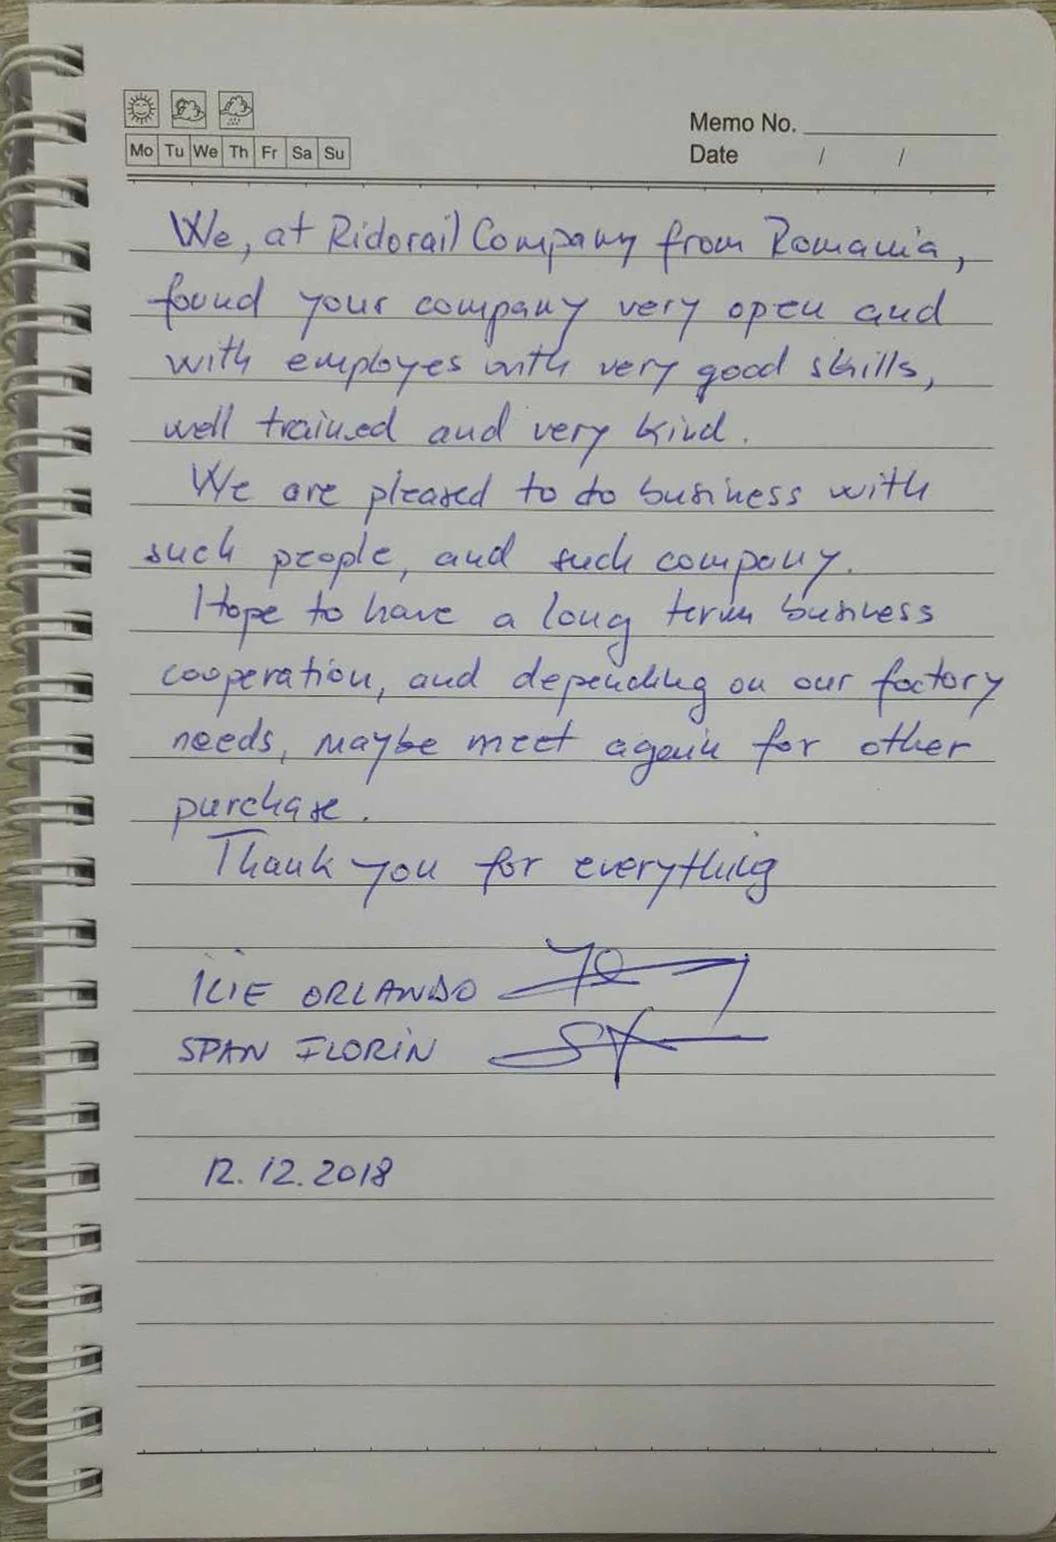 Memo No.
Mo Tu We Th Fr Sa Su
Date / /
We, at Ridorail Company from Romania,
found your company very open and
with employes with very good skills,
well trained and very kind.
We are pleased to do business with
such people, and such company.
Hope to have a long term business
cooperation, and depending on our factory
needs, maybe meet again for other
purchase.
Thank you for everything
ILIE ORLANDO
SPAN FLORIN
12.12.2018